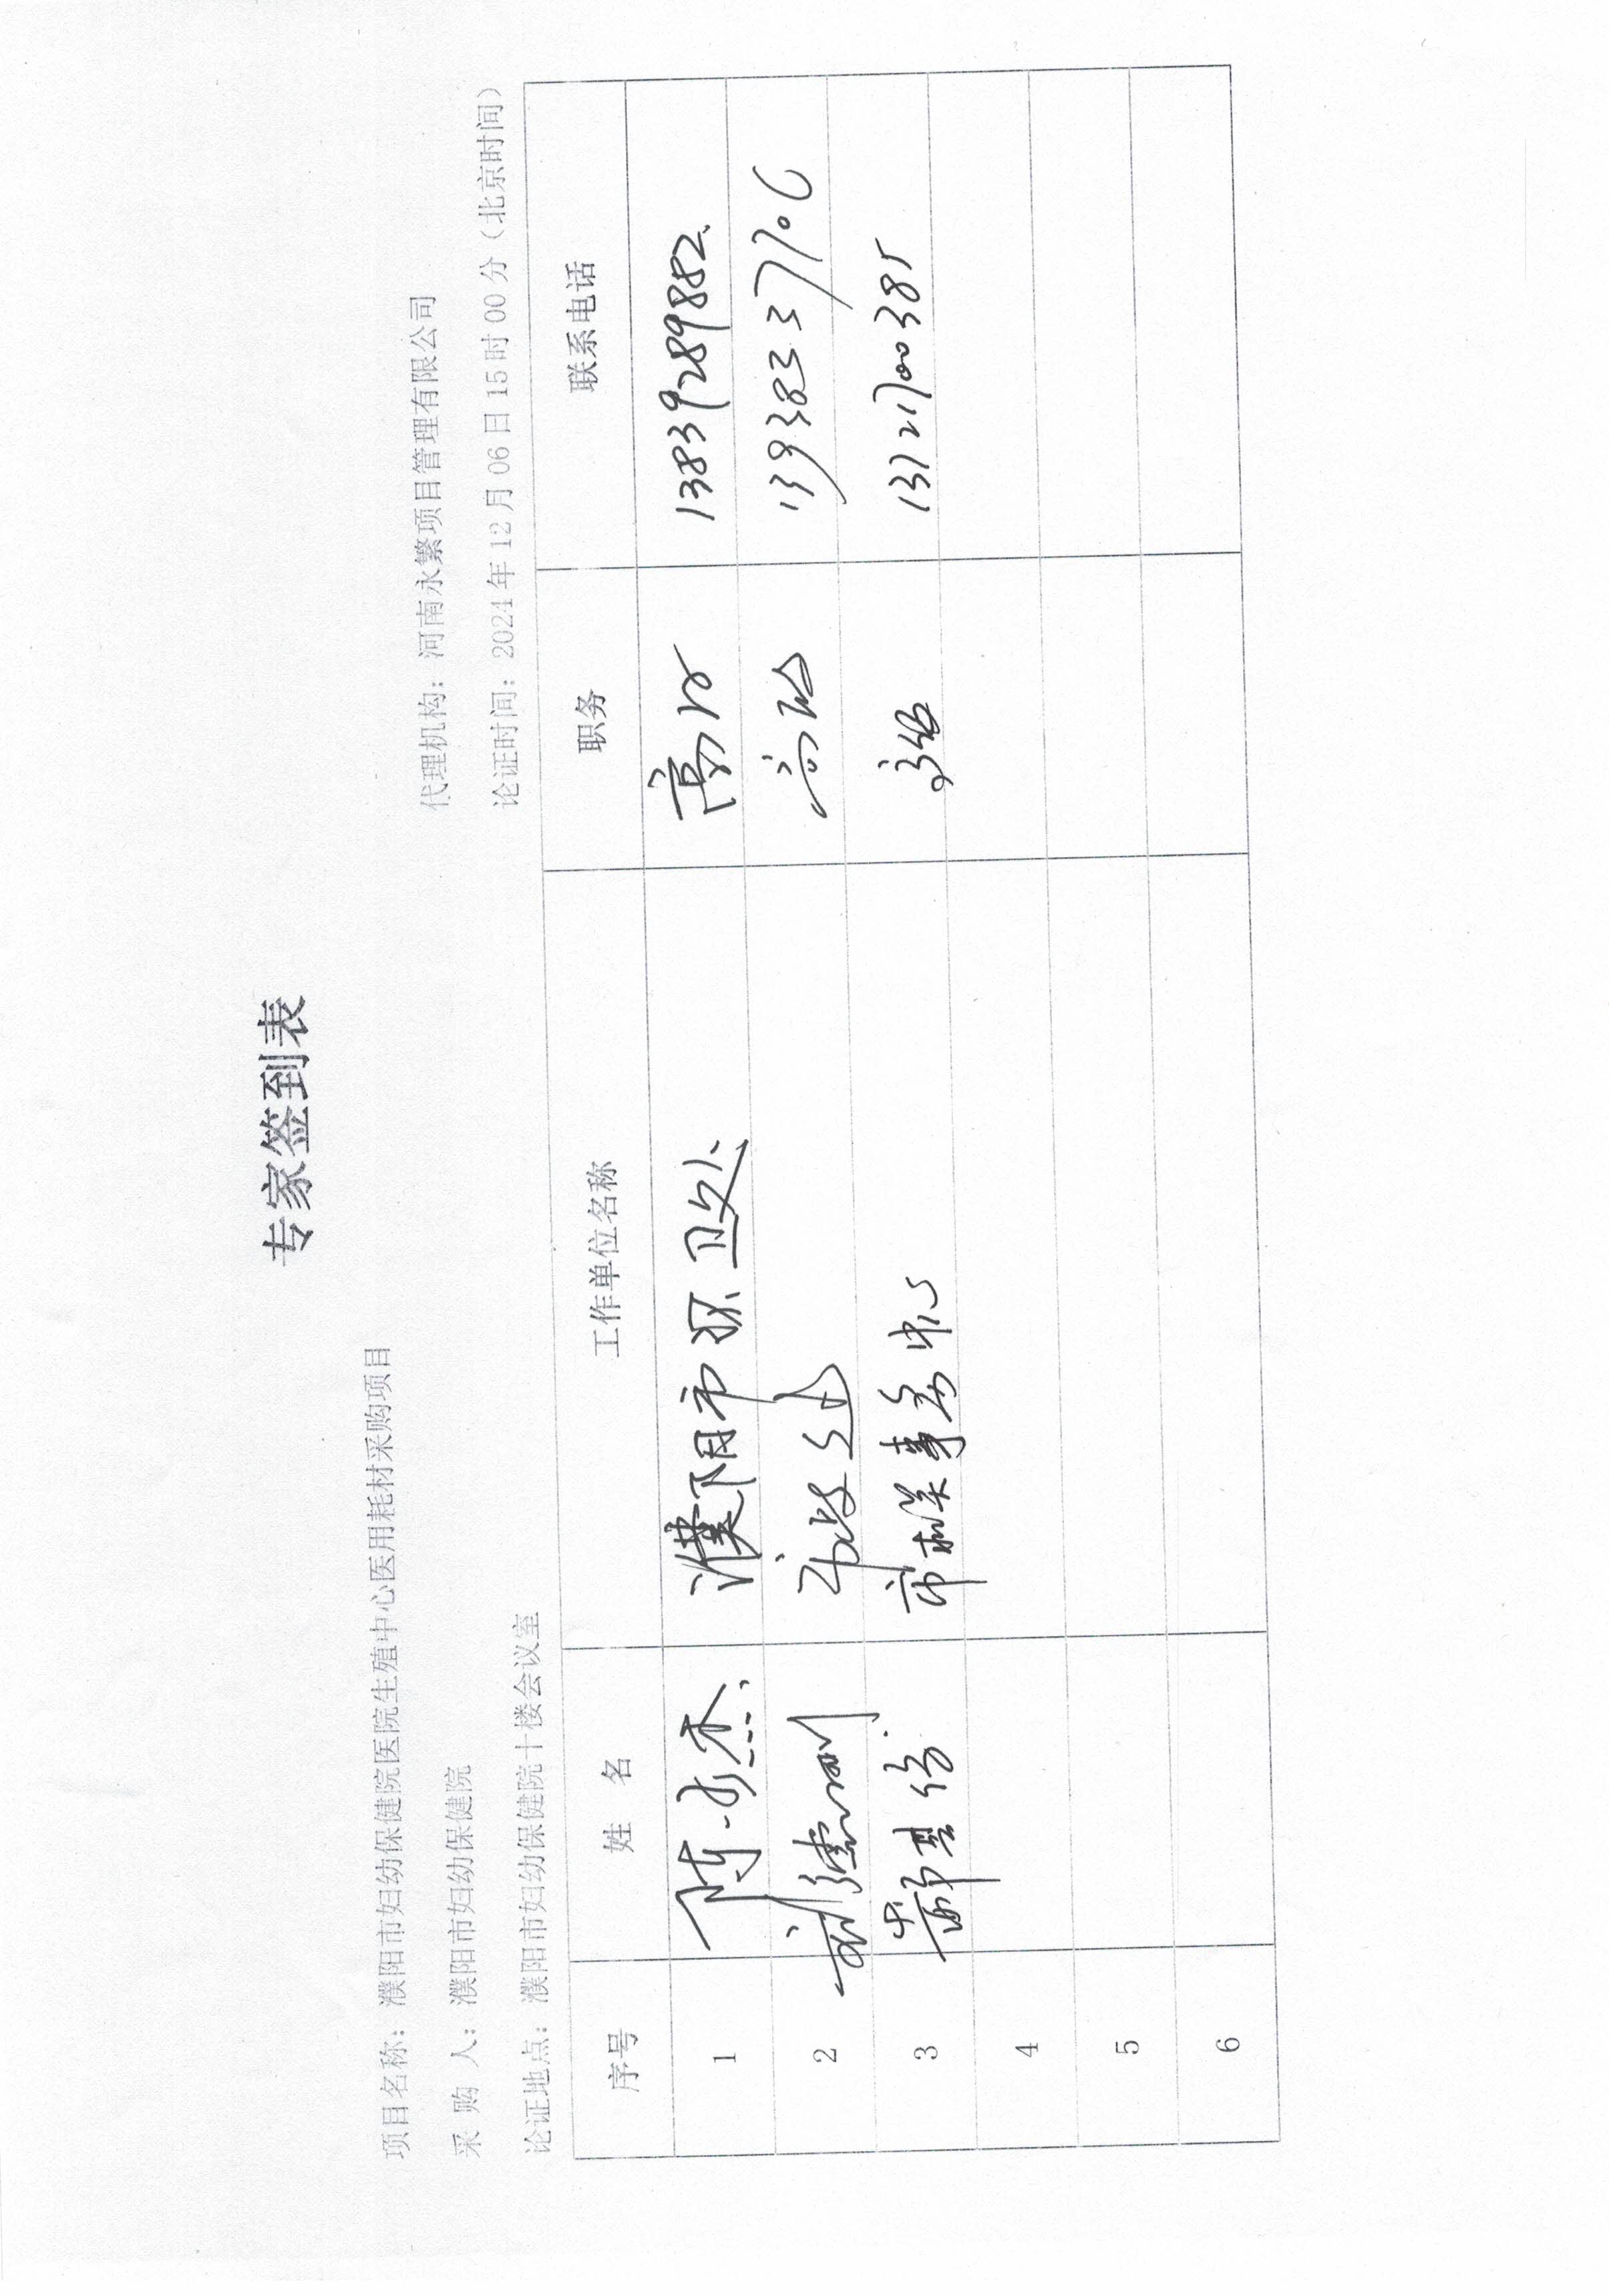 专家签到表
项目名称：濮阳市妇幼保健院医院生殖中心医用耗材采购项目
采 购 人：濮阳市妇幼保健院 代理机构：河南永繁项目管理有限公司
论证地点：濮阳市妇幼保健院十楼会议室 论证时间：2024年12月06日15时00分（北京时间）
序号 姓 名 工作单位名称 职务 联系电话
1 濮阳市环卫处 高工 13839289882
2 13938337706
3 13721700385
4
5
6